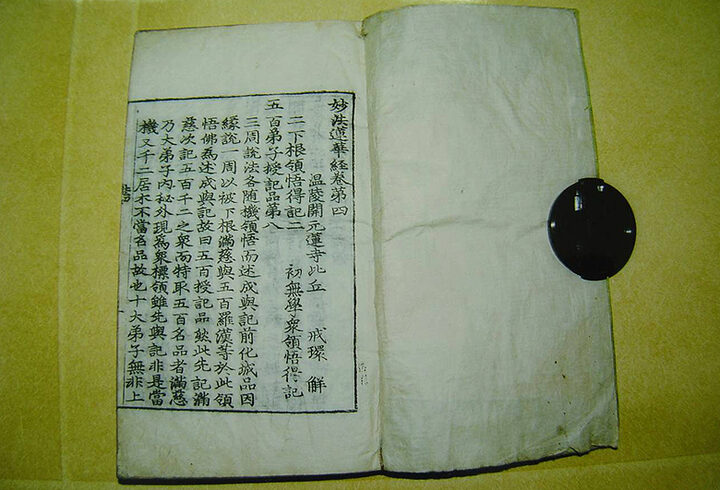 妙法蓮華經卷第四
温陵開元蓮寺比丘 戒環 解
二下根領悟得記二 初無學衆領悟得記
五百弟子授記品第八
三周說法各随機領悟而述成與記前化城品因
緣說一周以被下根滿慈與五百羅漢等於此領
悟佛爲述成與記故曰五百授記品然此先記滿
慈次記五百千二之衆而特取五百名品者滿慈
乃大弟子內秘外現爲衆標領雖先與記非是當
機又千二居末不當名品故也十大弟子無非上